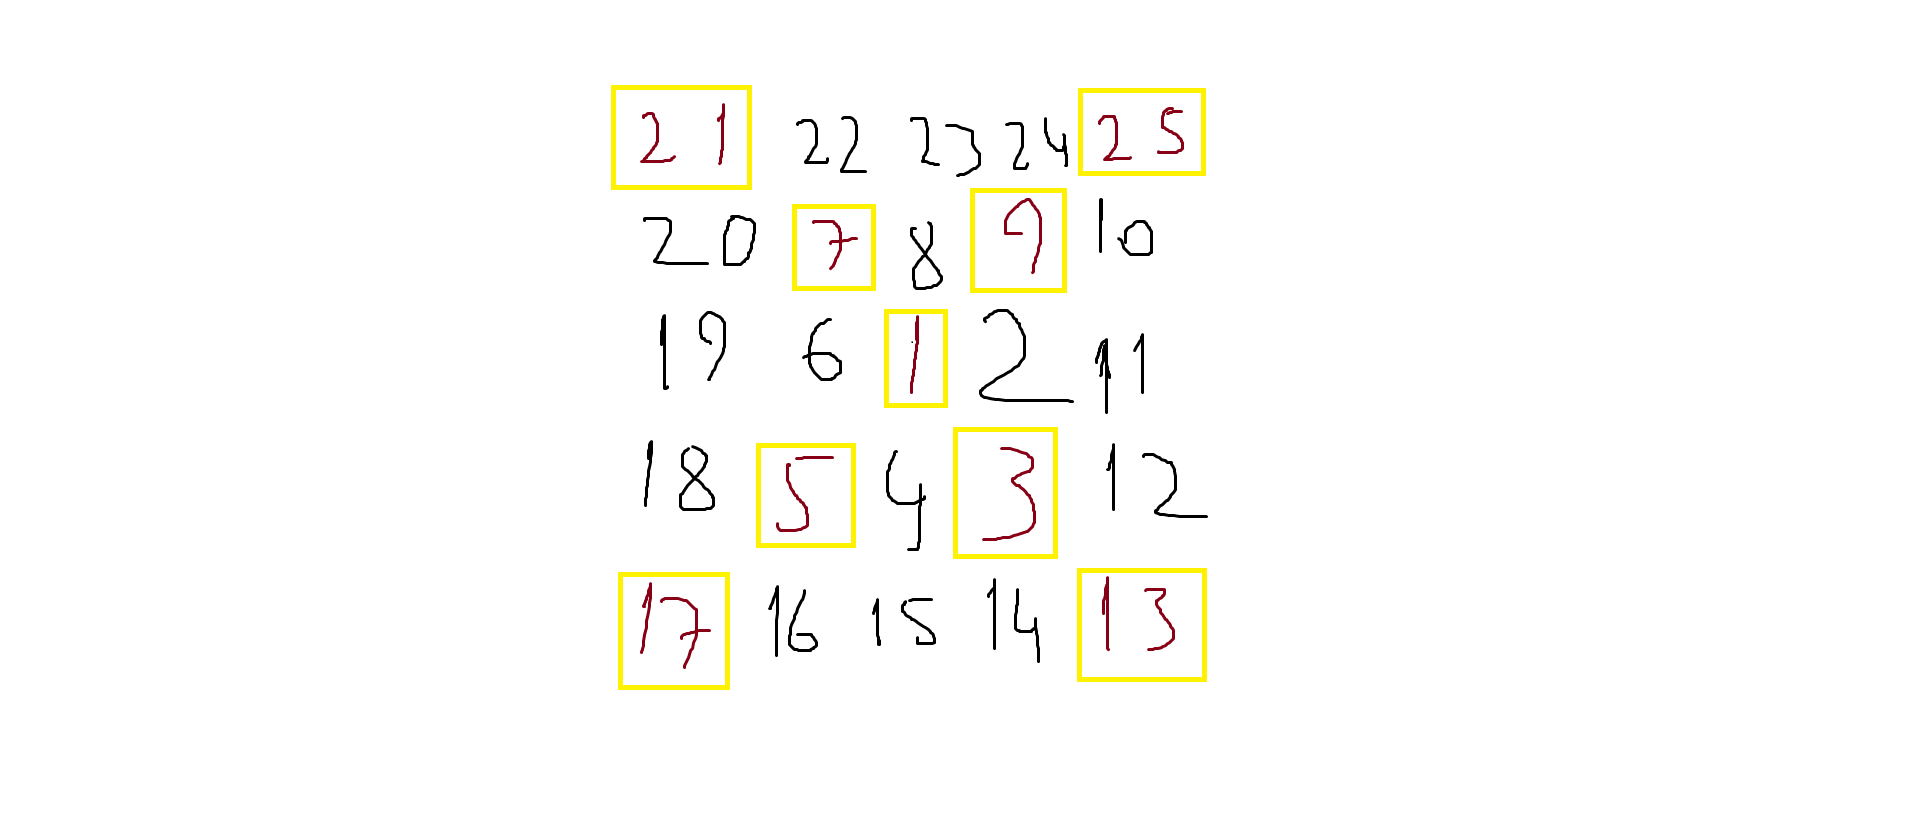 21 22 23 24 25
20 7 8 9 10
19 6 1 2 11
18 5 4 3 12
17 16 15 14 13